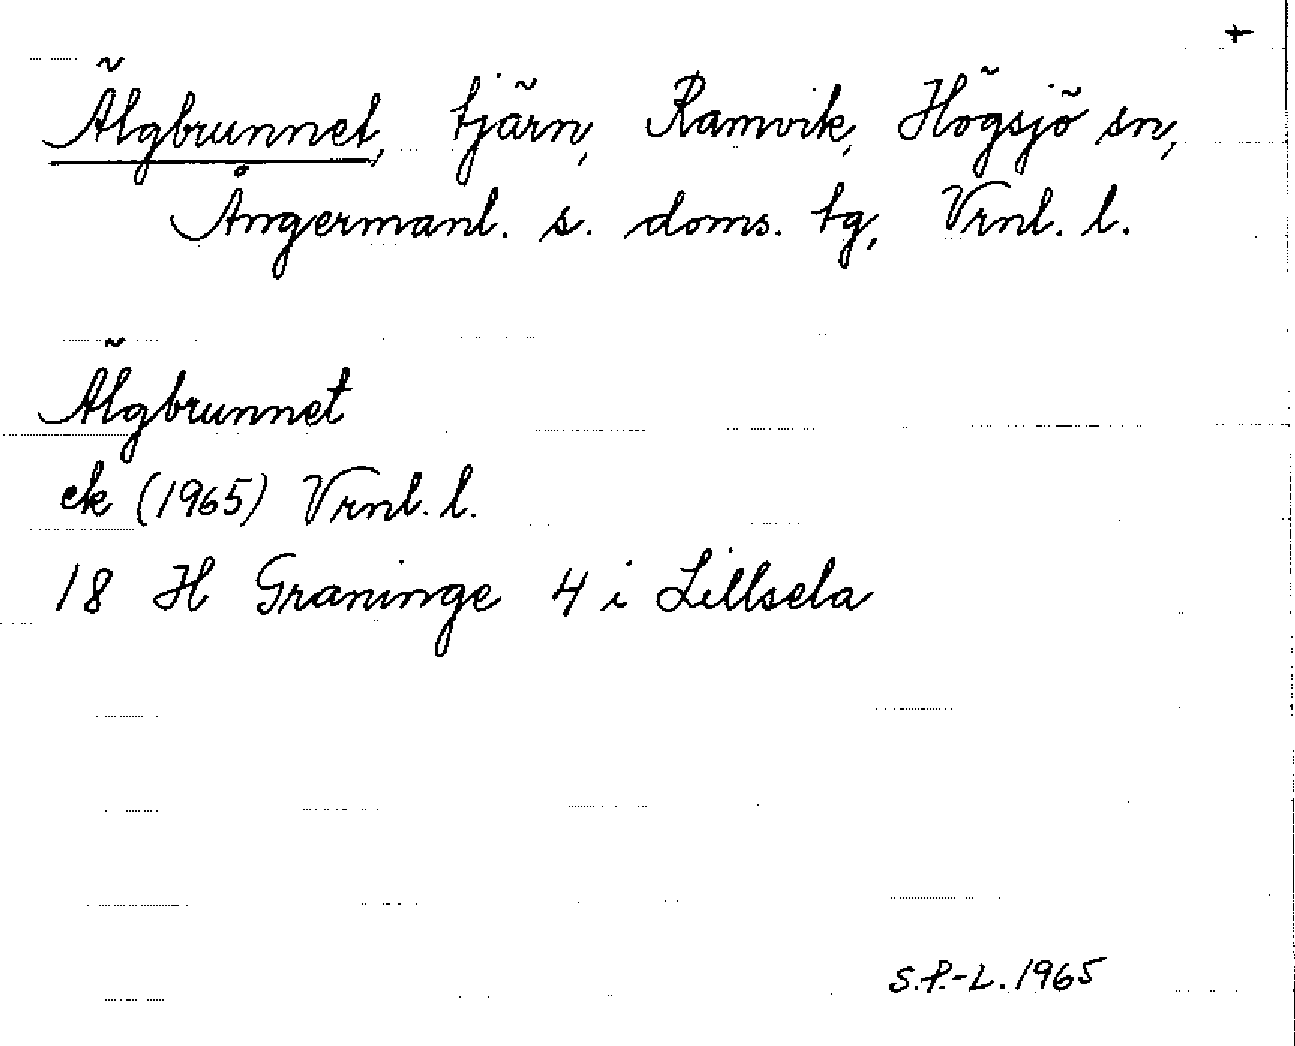 +
Älgbrunnet, tjärn, Ramvik, Högsjö sn,
Ångermanl. s. doms. tg, Vrnl. l.
Älgbrunnet
ek (1965) Vrnl. l.
18 H Graninge 4 i Lillsela
S.P.-L. 1965